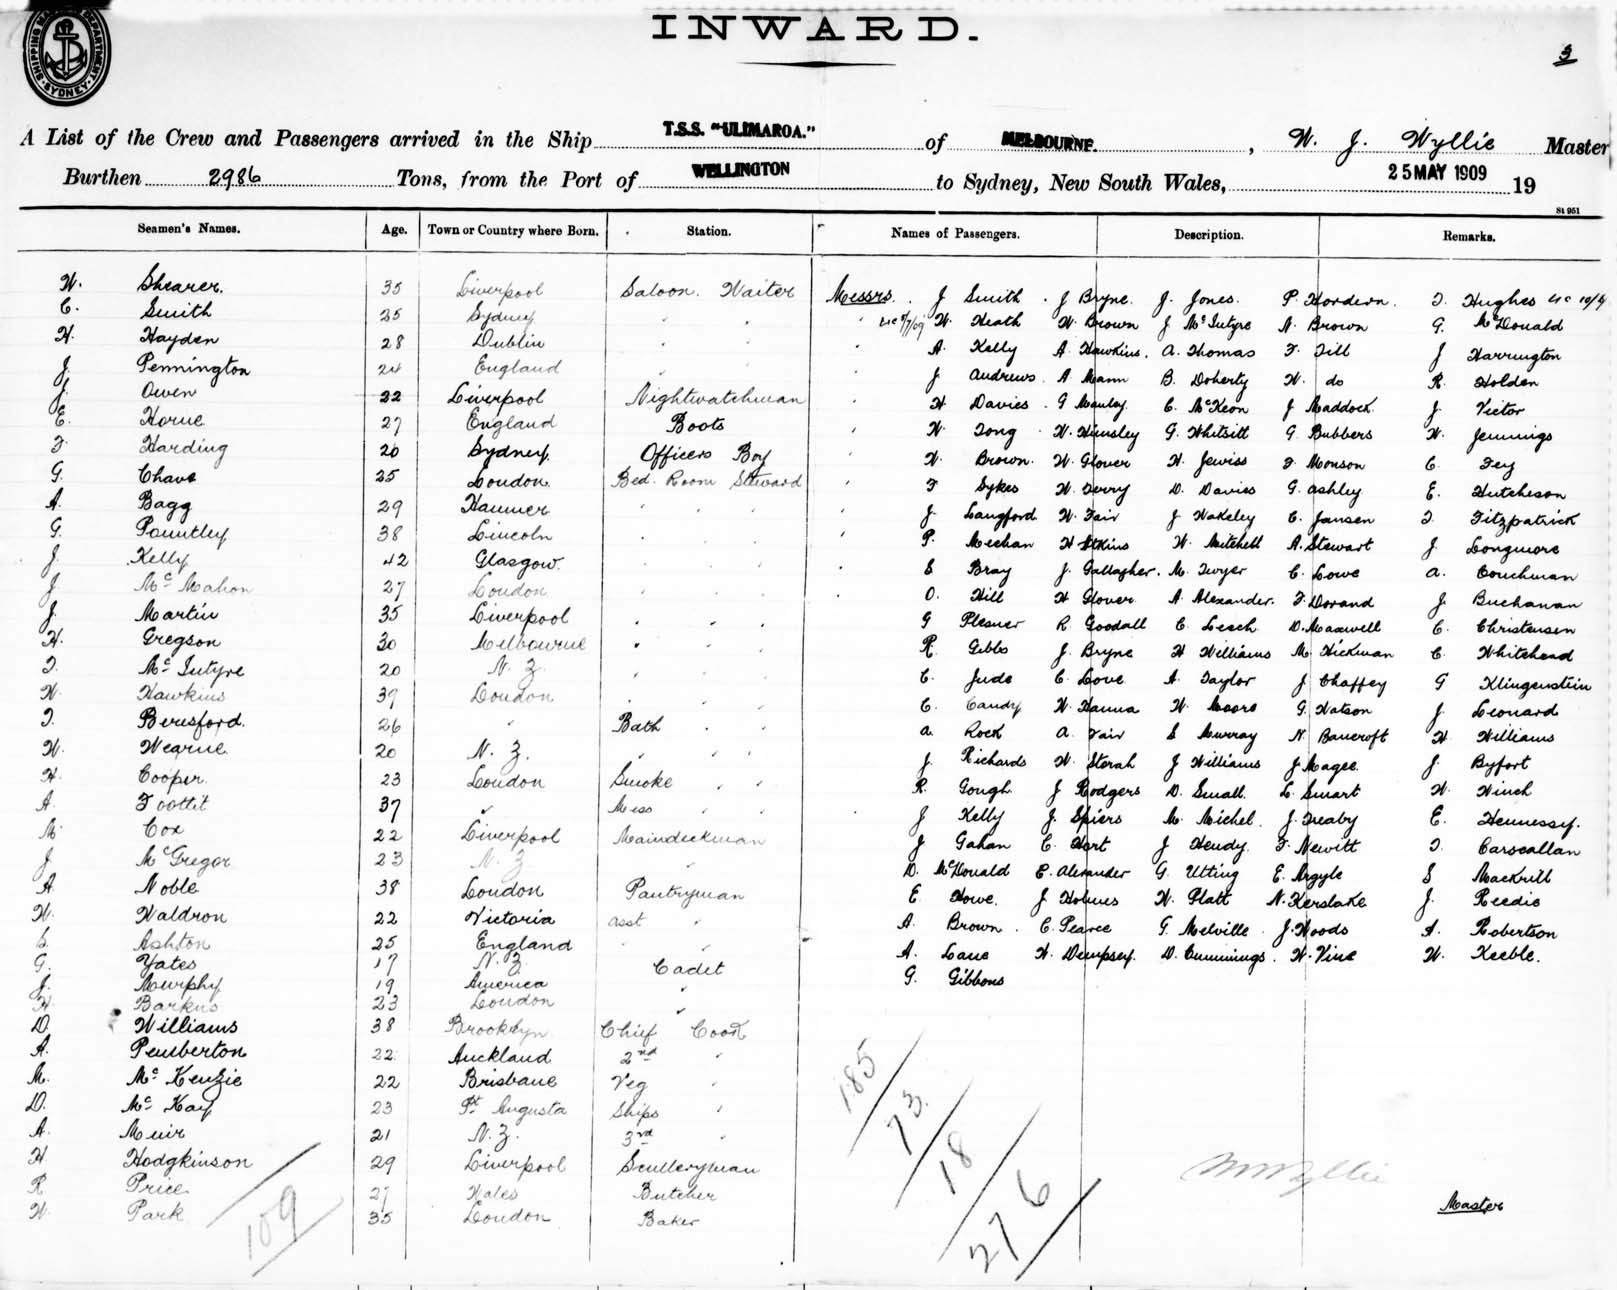 SHIPPING MASTER'S DEPARTMENT SYDNEY
INWARD.
3
A List of the Crew and Passengers arrived in the Ship T.S.S. "ULIMAROA." of MELBOURNE. , W. J. Wyllie Master
Burthen 2986 Tons, from the Port of WELLINGTON to Sydney, New South Wales, 25 MAY 1909 19
St 951
Seamen's Names. Age. Town or Country where Born. Station. Names of Passengers. Description. Remarks.
W. Shearer. 35 Liverpool Saloon. Waiter
C. Smith 25 Sydney " "
H. Hayden 28 Dublin " "
J. Pennington 24 England " "
J. Owen 22 Liverpool Nightwatchman
E. Horne 27 England Boots
F. Harding 20 Sydney. Officers Boy
G. Chave 25 London Bed. Room Steward
A. Bagg 29 Hanmer " " "
G. Pountley 38 Lincoln " " "
J. Kelly 42 Glasgow. " " "
J. McMahon 27 London " " "
J. Martin 35 Liverpool " " "
H. Gregson 30 Melbourne " " "
T. McIntyre 20 N. Z. " " "
W. Hawkins 39 London " " "
T. Beresford. 26 " Bath " "
W. Wearne 20 N. Z. " " "
H. Cooper. 23 London Smoke " "
A. Toottit 37 " Mess " "
M. Cox 22 Liverpool Maindeckman
J. McGregor 23 N. Z "
A. Noble 38 London Pantryman
W. Waldron 22 Victoria asst "
S. Ashton 25 England " "
G. Yates 17 N. Z. Cadet
J. Murphy 19 America "
H. Barkus 23 London "
D. Williams 38 Brooklyn. Chief Cook
A. Pemberton 22 Auckland 2nd "
M. McKenzie 22 Brisbane Veg "
D. McKay 23 Pt Augusta Ships "
A. Muir 21 N. Z. 3rd "
H Hodgkinson 29 Liverpool Sculleryman
R Price 27 Wales Butcher
W. Park 35 London Baker
109
Messrs. J Smith J Bryne. J. Jones. P. Hordern. T. Hughes
W. Heath W. Brown J McIntyre A. Brown G. McDonald
A. Kelly A Hawkins. A. Thomas F. Till J Harrington
J Andrews. A Mann B. Doherty W. do R. Holden
H Davies G Manley. C. McKeon J Maddock. J. Victor
W. Tong W. Hinsley G. Whitsitt G Bubbers W. Jennings
W. Brown. W. Glover H. Jewiss F. Monson C. Fey
F Sykes W. Terry D. Davies G. Ashley E. Hutcheson
J. Langford. W. Fair J Wakeley C. Jansen T. Fitzpatrick
P. Meehan H Atkins W. Mitchell A. Stewart J. Longmore
E Bray J. Gallagher. M. Dwyer C. Lowe A. Couchman
O. Hill H Glover A. Alexander. F. Dorand J. Buchanan
G Plesner R. Goodall C. Leech D. Maxwell C. Christensen
R. Gibbs J. Bryne H Williams M. Hickman C. Whitehead
C. Jude C. Love A. Taylor J Chaffey G Klingenstein
C. Candy W. Hanna W. Moore G. Watson J. Leonard
A. Rock A. Fair S Murray N. Bancroft H. Williams
J. Richards W. Sterah J Williams J Magee. J. Byfort
R. Gough J Rodgers D. Small. L. Smart W. Winch
J Kelly J. Spiers M. Michel. J. Treaby E. Hennessy.
J Gahan C. Hart J Hendy. F. Newitt T. Carscallan
D. McDonald E. Alexander G. Utting E. Argyle S Mackrill
E Howe. J Holmes W. Platt N. Kerslake J. Reedie
A. Brown. C. Pearce G. Melville. J. Woods A. Robertson
A. Lane H. Dempsey. D. Cummings. W. Vine W. Keeble.
G. Gibbons
185
73
18
276
WWyllie
Master